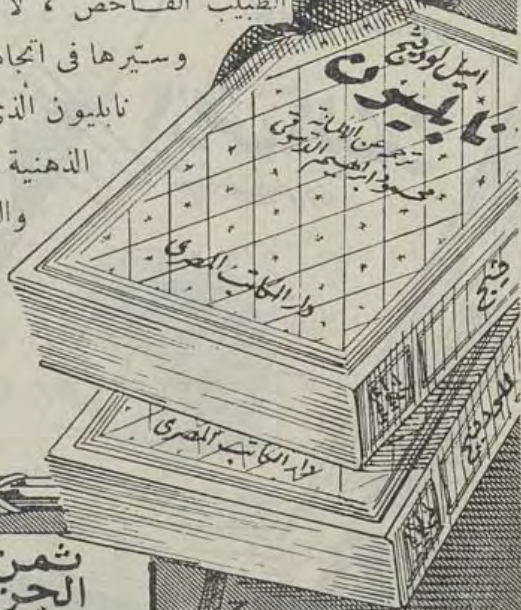 الطبيب الفاحص ، لا
وسيّرها فى اتجا
نابليون الذى
الذهنية
وال
اميل لودفيج
نابليون
ترجمه عن الألمانية
محمود ابراهيم الدسوقى
دار الكاتب المصرى
دار الكاتب المصرى
ثمن
الجز